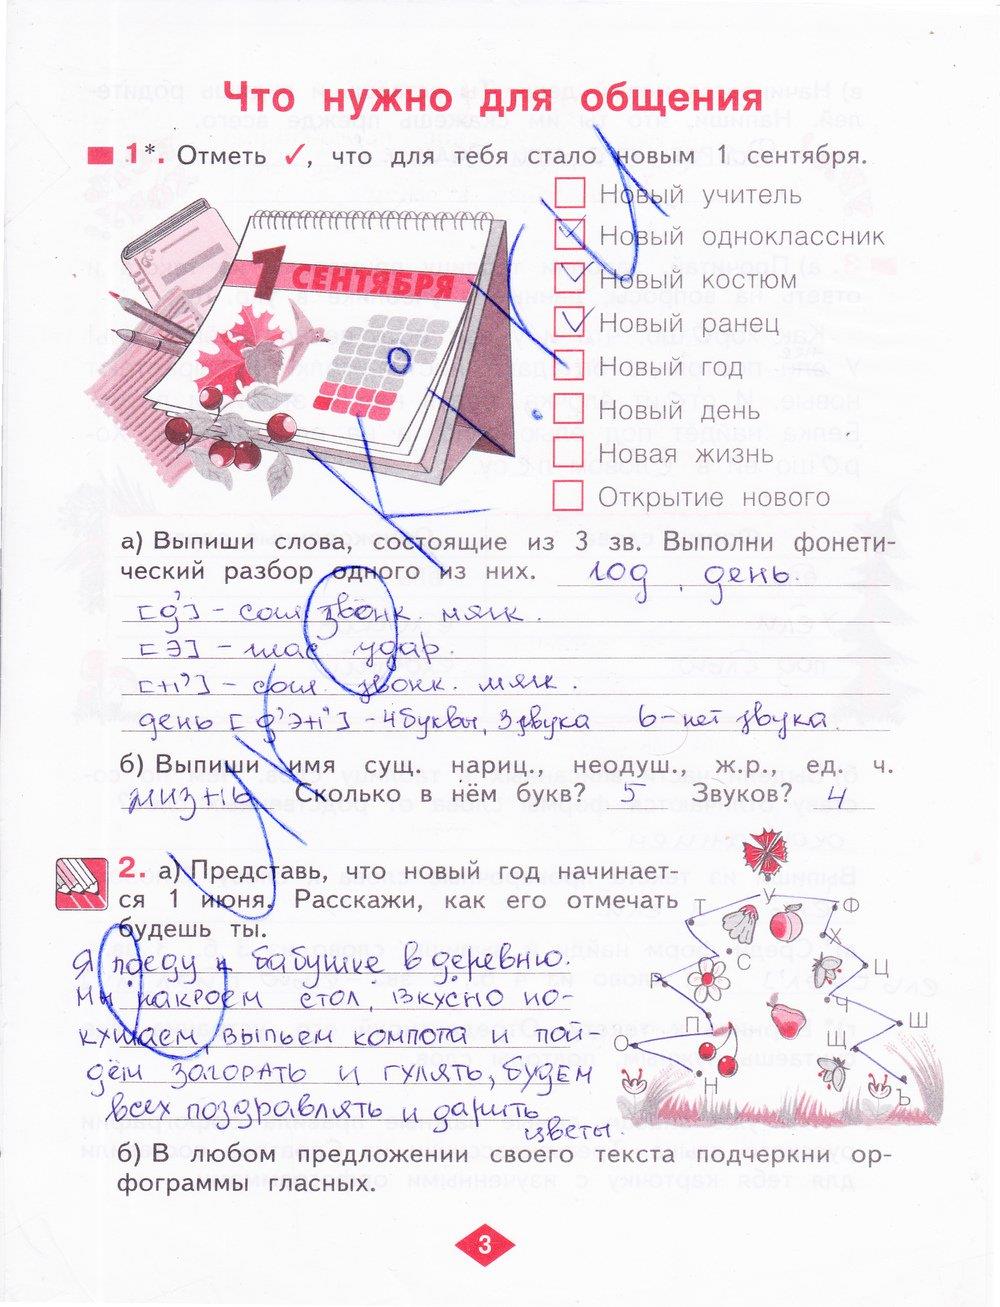 Что нужно для общения
1*. Отметь ✓, что для тебя стало новым 1 сентября.
1 СЕНТЯБРЯ
Новый учитель
Новый одноклассник
Новый костюм
Новый ранец
Новый год
Новый день
Новая жизнь
Открытие нового
а) Выпиши слова, состоящие из 3 зв. Выполни фонети-
ческий разбор одного из них. год, день.
[д’] - согл. звонк. мягк.
[э] - глас. удар.
[н’] - согл. звонк. мягк.
день [д’эн’] - 4 буквы, 3 звука ь - нет звука.
б) Выпиши имя сущ. нариц., неодуш., ж.р., ед. ч.
жизнь. Сколько в нём букв? 5 Звуков? 4
2. а) Представь, что новый год начинает-
ся 1 июня. Расскажи, как его отмечать
будешь ты.
Я поеду к бабушке в деревню.
Мы накроем стол, вкусно по-
кушаем, выпьем компота и пой-
дём загорать и гулять, будем
всех поздравлять и дарить
цветы.
Т У Ф
Х
С Ц
Р Ч
П Ш
О Щ
Н Ъ
б) В любом предложении своего текста подчеркни ор-
фограммы гласных.
3